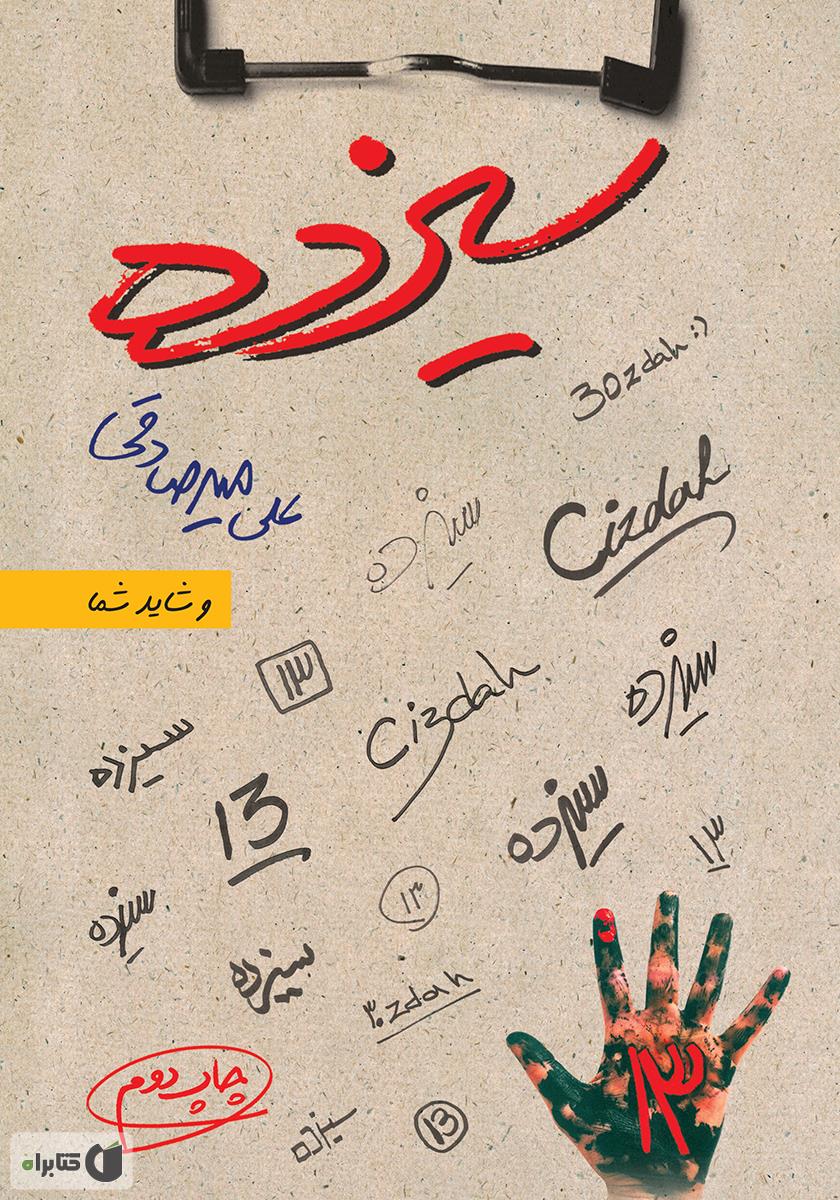 سیزده
30zdah :)
علی میرصادقی
Cizdah
سیزده
و شاید شما
۱۳
سیزده
Cizdah
سیزده
13
سیزده
۱۳
سیزده
۱۳
سیزده
۳۰zdah
۱۳
چاپ دوم
13
سیزده
کتابراه